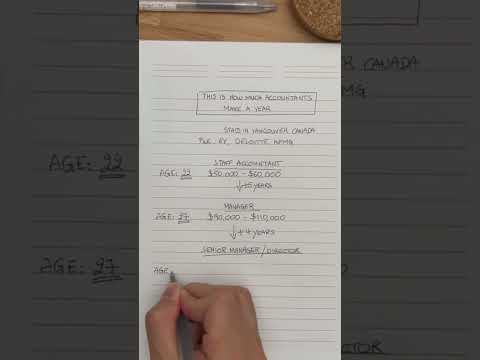 THIS IS HOW MUCH ACCOUNTANTS
MAKE A YEAR
STATS IN VANCOUVER CANADA
PWC EY DELOITTE KPMG
STAFF ACCOUNTANT
AGE: 22 $50,000 - $60,000
↓+5 YEARS
MANAGER
AGE: 27 $90,000 - $110,000
↓+4 YEARS
SENIOR MANAGER / DIRECTOR
AGE